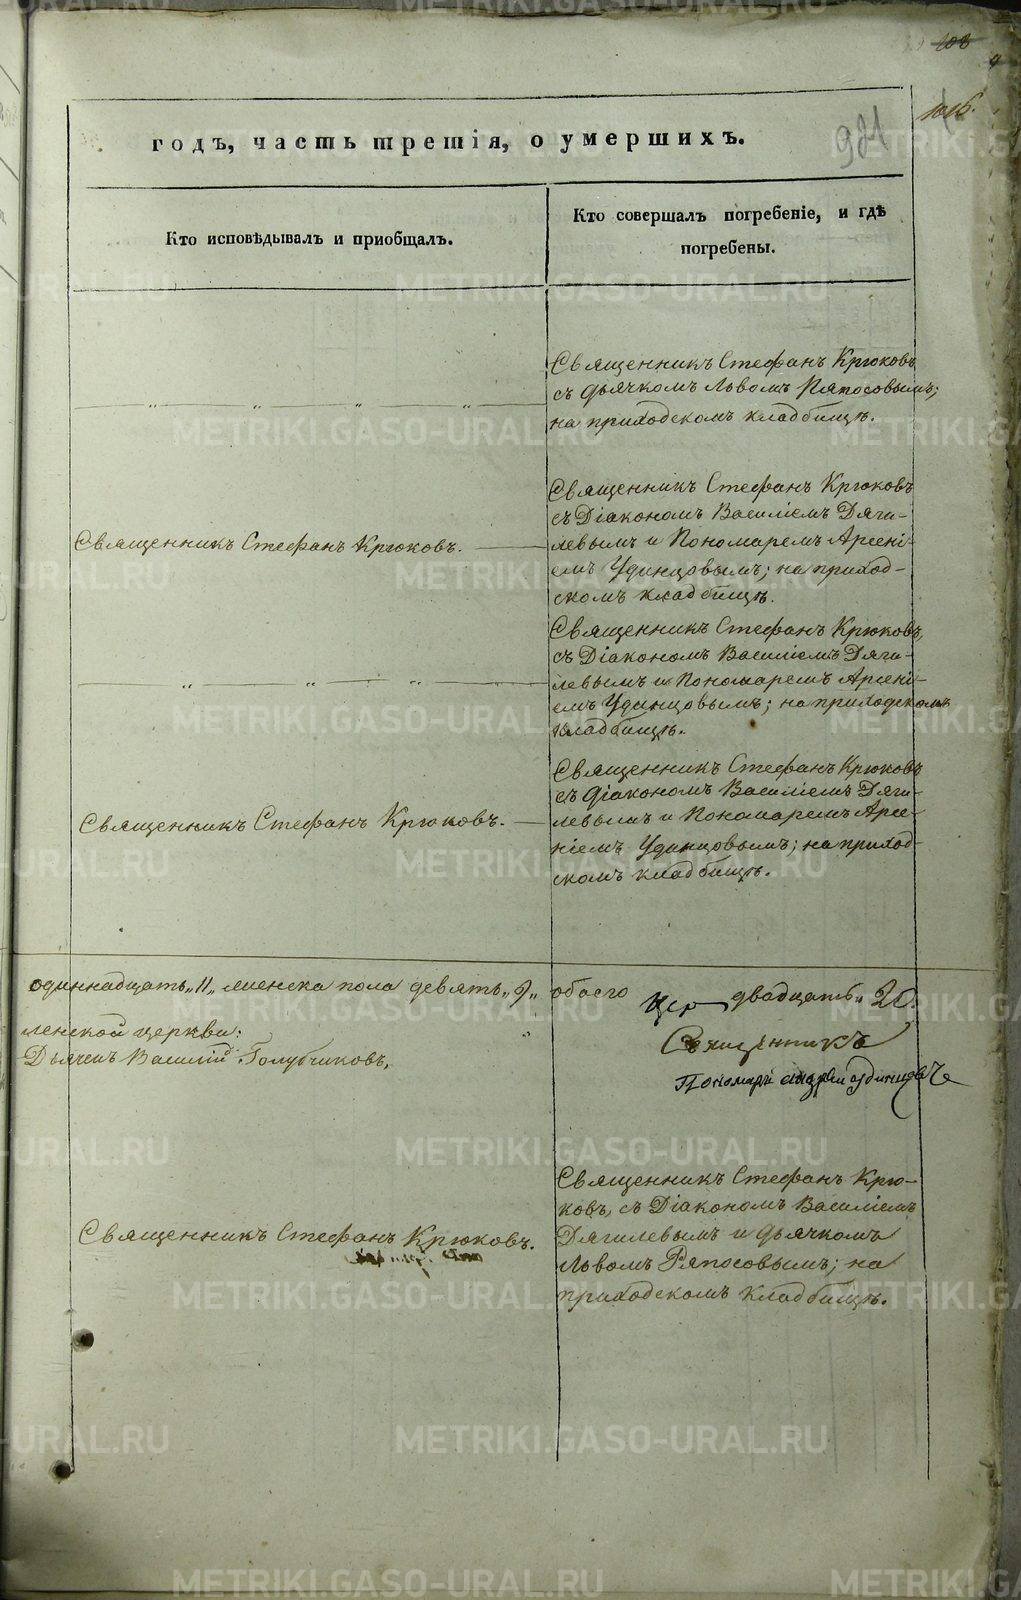 108
1016.
981
годъ, часть третія, о умершихъ.
Кто исповѣдывалъ и пріобщалъ.
Кто совершалъ погребеніе, и гдѣ
погребены.
Священникъ Стефанъ Крюковъ
съ дьячкомъ Львомъ Ряпосовымъ;
на приходскомъ кладбищѣ.
Священникъ Стефанъ Крюковъ.
Священникъ Стефанъ Крюковъ
съ Діакономъ Василіемъ Дяги-
левымъ и Пономаремъ Арсені-
емъ Удинцовымъ; на приход-
скомъ кладбищѣ.
Священникъ Стефанъ Крюковъ,
съ Діакономъ Василіемъ Дяги-
левымъ и Пономаремъ Арсені-
емъ Удинцовымъ; на приходскомъ
кладбищѣ.
Священникъ Стефанъ Крюковъ.
Священникъ Стефанъ Крюковъ
съ Діакономъ Василіемъ Дяги-
левымъ и Пономаремъ Арсе-
ніемъ Удинцовымъ; на приход-
скомъ кладбищѣ.
одиннадцать „11„ женска пола девять „9„ обоего двадцать „20.
ленской церкви.
Священникъ
Дьячекъ Василій Голубчиковъ,
Пономарь Андрей Удинцовъ
Священникъ Стефанъ Крюковъ.
Священникъ Стефанъ Крю-
ковъ, съ Діакономъ Василіемъ
Дягилевымъ и дьячкомъ
Львомъ Ряпосовымъ; на
приходскомъ кладбищѣ.
METRIKI.GASO-URAL.RU